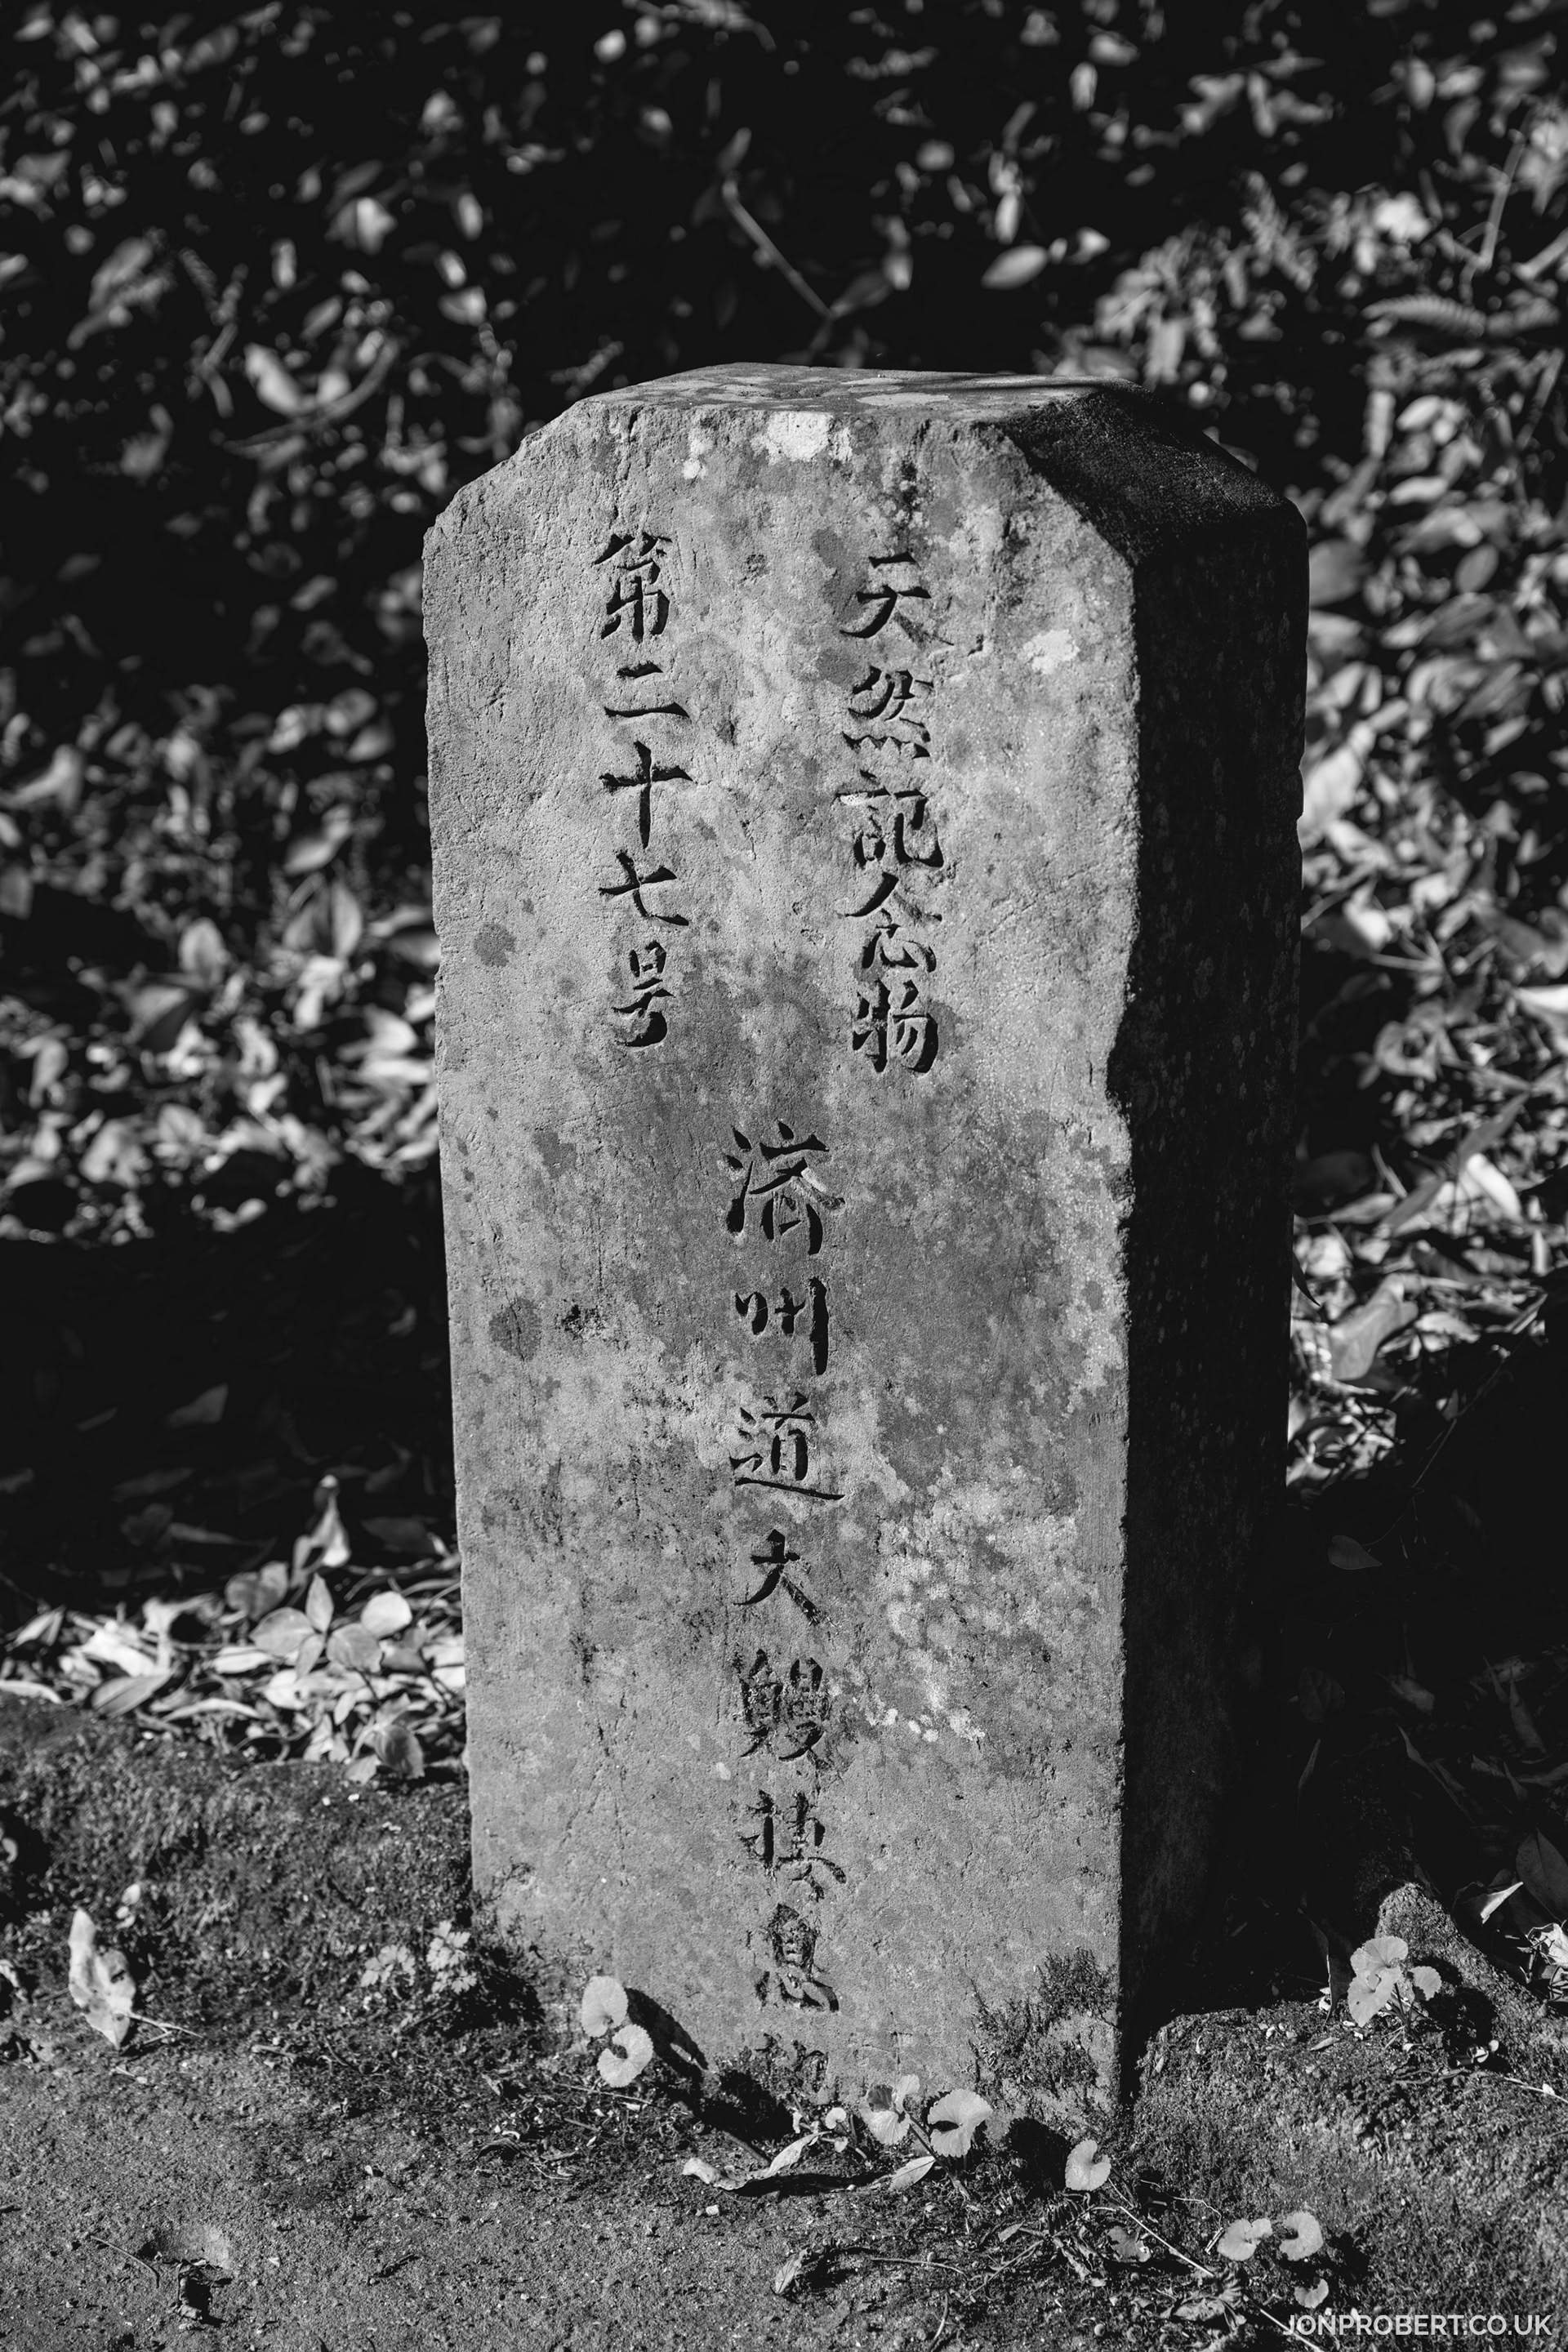 天然記念物
第二十七号
済州道大鰻棲息
JONPROBERT.CO.UK